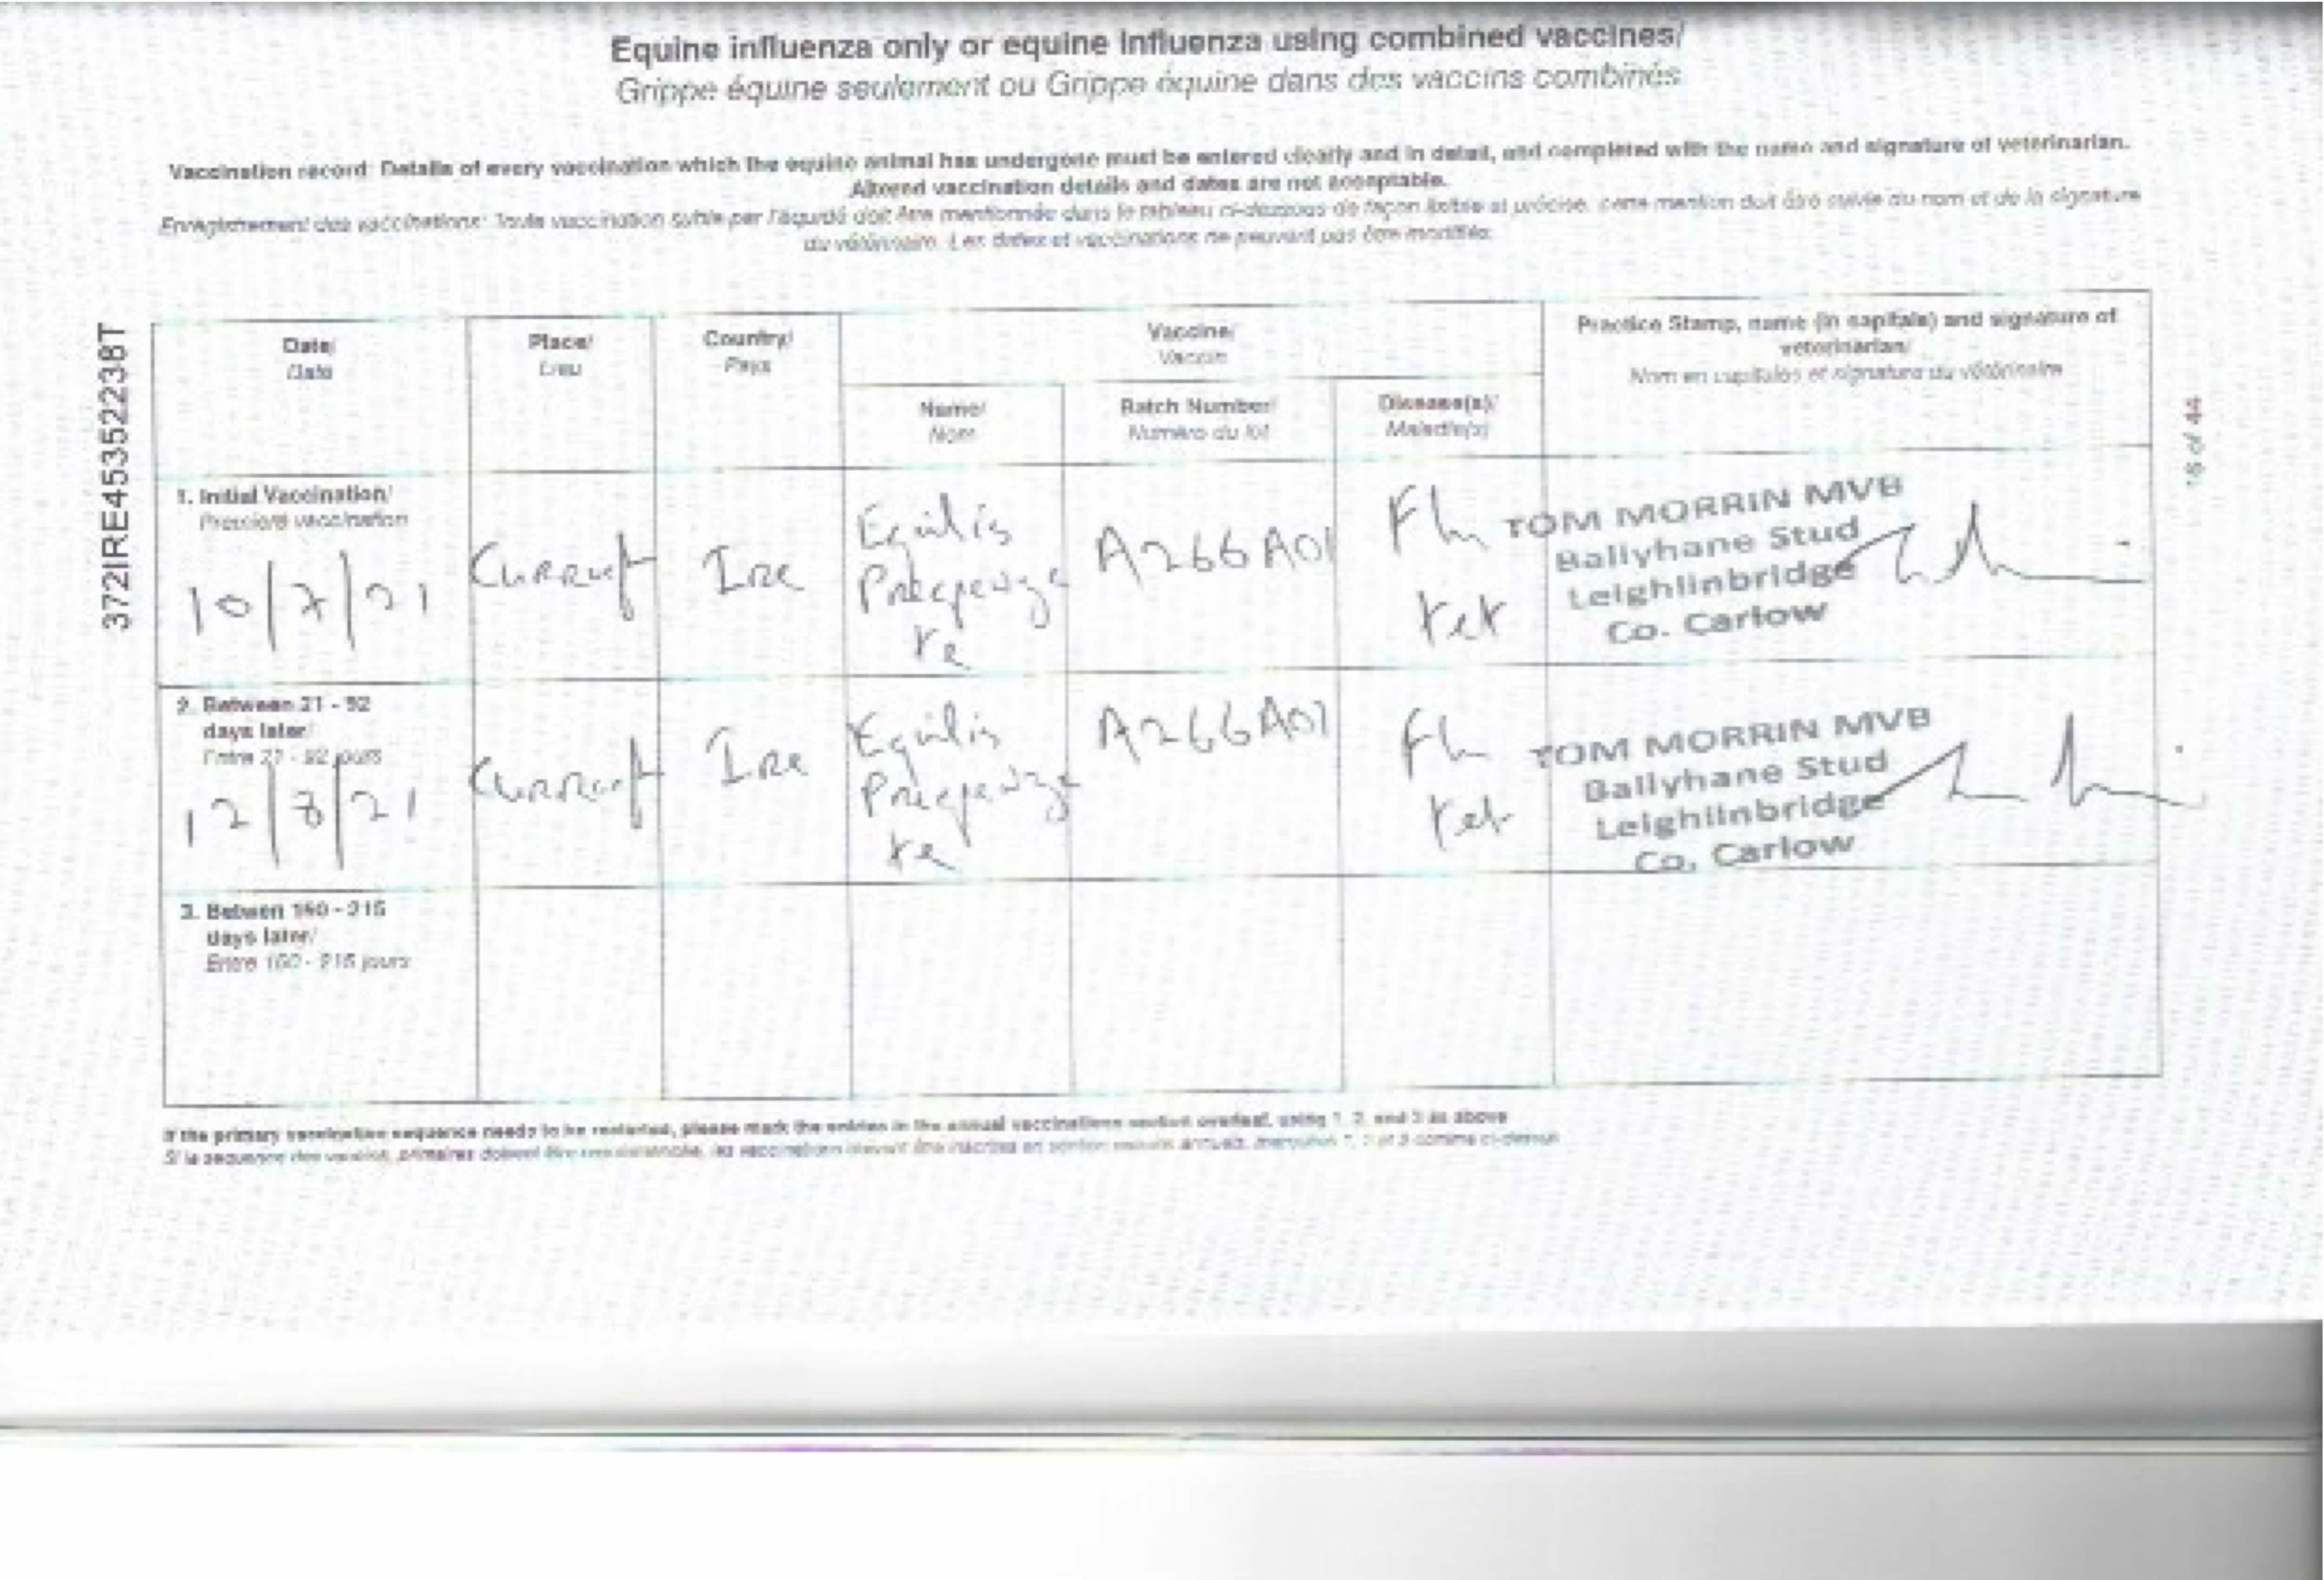 Equine influenza only or equine influenza using combined vaccines/
Grippe équine seulement ou Grippe équine dans des vaccins combinés
Vaccination record: Details of every vaccination which the equine animal has undergone must be entered clearly and in detail, and completed with the name and signature of veterinarian.
Altered vaccination details and dates are not acceptable.
Enregistrement des vaccinations: Toute vaccination subie par l'équidé doit être mentionnée dans le tableau ci-dessous de façon lisible et précise, cette mention doit être suivie du nom et de la signature
du vétérinaire. Les dates et vaccinations ne peuvent pas être modifiés.
372IRE45352238T
16 of 44
Date/
Date
Place/
Lieu
Country/
Pays
Vaccine/
Vaccin
Practice Stamp, name (in capitals) and signature of
veterinarian/
Nom en capitales et signature du vétérinaire
Name/
Nom
Batch Number/
Numéro du lot
Disease(s)/
Maladie(s)
1. Initial Vaccination/
Première vaccination
10/7/21
Curragh
Ire
Equilis
Prequenza
te
A266A01
Flu
tet
TOM MORRIN MVB
Ballyhane Stud
Leighlinbridge
Co. Carlow
2. Between 21 - 92
days later/
Entre 21 - 92 jours
12/8/21
Curragh
Ire
Equilis
Prequenza
te
A266A01
Flu
tet
TOM MORRIN MVB
Ballyhane Stud
Leighlinbridge
Co. Carlow
3. Betwen 150 - 215
days later/
Entre 150 - 215 jours
If the primary vaccination sequence needs to be restarted, please mark the entries in the annual vaccinations section overleaf, using 1, 2, and 3 as above
Si la sequence des vaccins, primaires doivent être les vaccinations doivent être inscrites en section vaccins annuels, 1, 2 et 3 comme ci-dessus